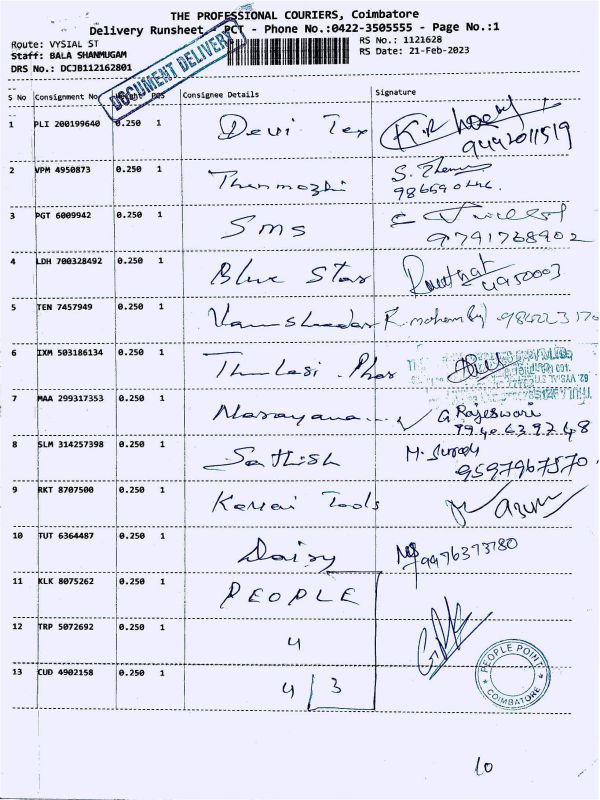 THE PROFESSIONAL COURIERS, Coimbatore
Delivery Runsheet - PCT - Phone No.:0422-3505555 - Page No.:1
Route: VYSIAL ST
RS No.: 1121628
Staff: BALA SHANMUGAM
RS Date: 21-Feb-2023
DRS No.: DCJB112162801
DOCUMENT DELIVERY
S No Consignment No. Weight PCS Consignee Details Signature
1 PLI 200199640 0.250 1 Devi Tex
9442011519
2 VPM 4950873 0.250 1 Thenmozhi
3 PGT 6009942 0.250 1 SMS
9791768902
4 LDH 700328492 0.250 1 Blue Star
4950003
5 TEN 7457949 0.250 1
6 IXM 503186134 0.250 1 Thulasi
7 MAA 299317353 0.250 1 Narayana... G. Rajeswari
8 SLM 314257398 0.250 1 Sathish
9597967570
9 RKT 8707500 0.250 1 Kovai Tools
10 TUT 6364487 0.250 1 Daisy 9976373780
11 KLK 8075262 0.250 1 PEOPLE
12 TRP 5072692 0.250 1 4
13 CUD 4902158 0.250 1 4 / 3
PEOPLE POINT
COIMBATORE
10